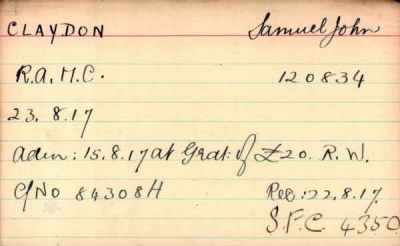 CLAYDON Samuel John
R.A.M.C. 120834
23. 8.17
Adm: 15.8.17 at Grat: of £20. R.W.
C/No 84308H Rec: 22.8.17.
S.F.C. 4350